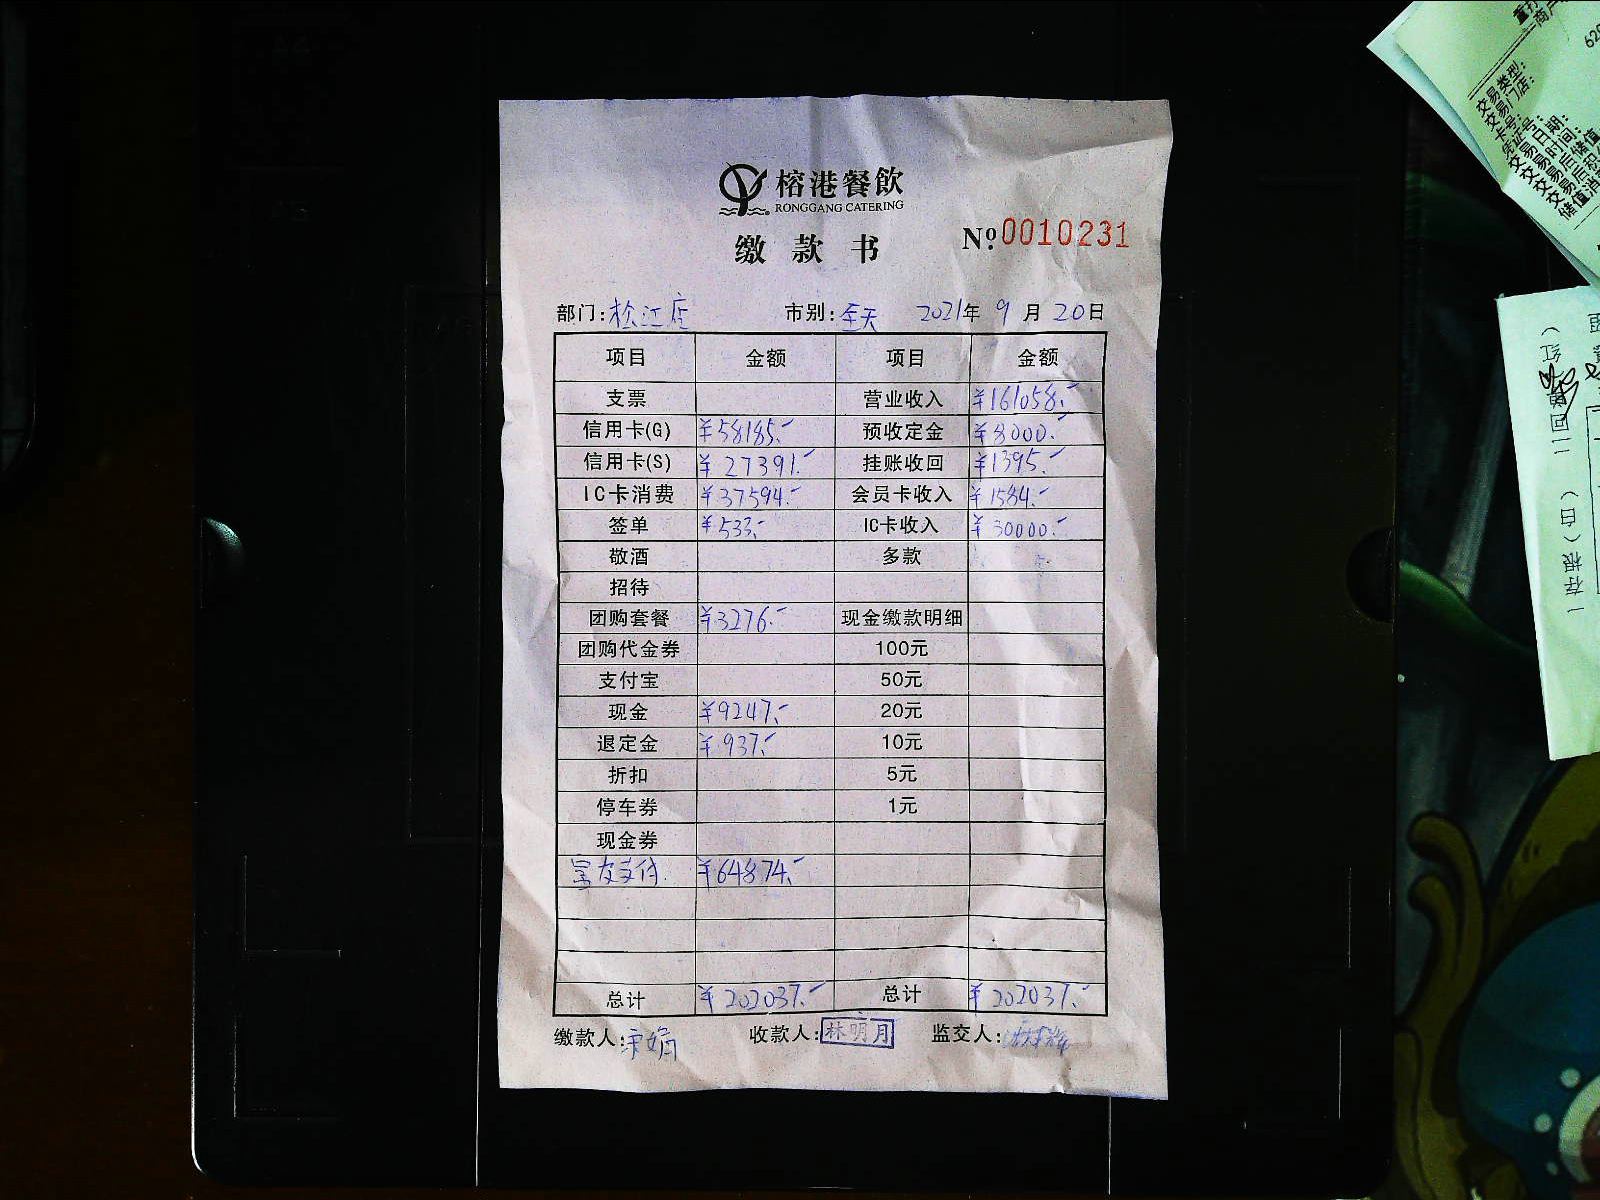 榕港餐飲
RONGGANG CATERING
缴款书
№ 0010231
部门：松江店 市别：全天 2021年 9月 20日
项目 金额 项目 金额
支票 营业收入 ¥161058.-
信用卡(G) ¥58185.- 预收定金 ¥8000.-
信用卡(S) ¥27391.- 挂账收回 ¥1395.-
IC卡消费 ¥37594.- 会员卡收入 ¥1584.-
签单 ¥533.- IC卡收入 ¥30000.-
敬酒 多款
招待
团购套餐 ¥3276.- 现金缴款明细
团购代金券 100元
支付宝 50元
现金 ¥9247.- 20元
退定金 ¥937.- 10元
折扣 5元
停车券 1元
现金券
支付 ¥64874.-
总计 ¥202037.- 总计 ¥202037.-
缴款人： 收款人：林明月 监交人：
交易类型：
交易门店：